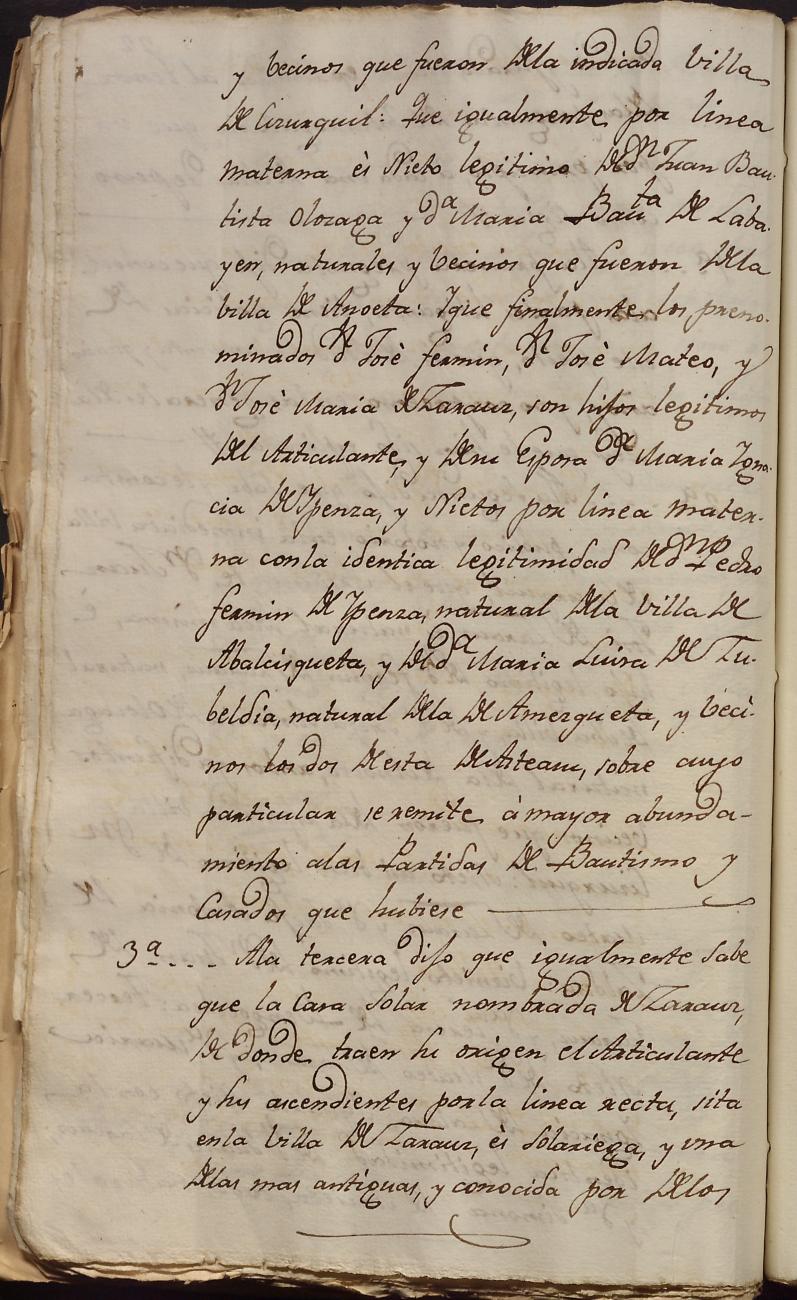 y vecinos que fueron dela indicada villa
de Cizurquil: Que igualmente por linea
materna ès Nieto legitimo de Dn Juan Bau-
tista Olozaga y Da Maria Bauta de Laba-
yen, naturales y vecinos que fueron dela
villa de Anoeta: Yque finalmente los preno-
minados Dn Josè fermin, Dn Josè Mateo, y
Dn Josè Maria de Zarauz, son hijos legitimos
del Articulante, y desu Esposa Da Maria Igna-
cia de Ypenza, y Nietos por linea mater-
na conla identica legitimidad de Dn Pedro
fermin de Ypenza, natural dela villa de
Abalcisqueta, y de Da Maria Luisa de Zu-
beldia, natural dela de Amezqueta, y veci-
nos los dos desta de Asteasu, sobre cuyo
particular se remite à mayor abunda-
miento alas Partidas de Bautismo y
Casados que hubiese
3a... Ala tercera dijo que igualmente sabe
que la Casa Solar nombrada de Zarauz,
de donde traen su origen el Articulante
y sus ascendientes porla linea recta, sita
enla villa de Zarauz, ès Solariega, y una
delas mas antiguas, y conocida por delos